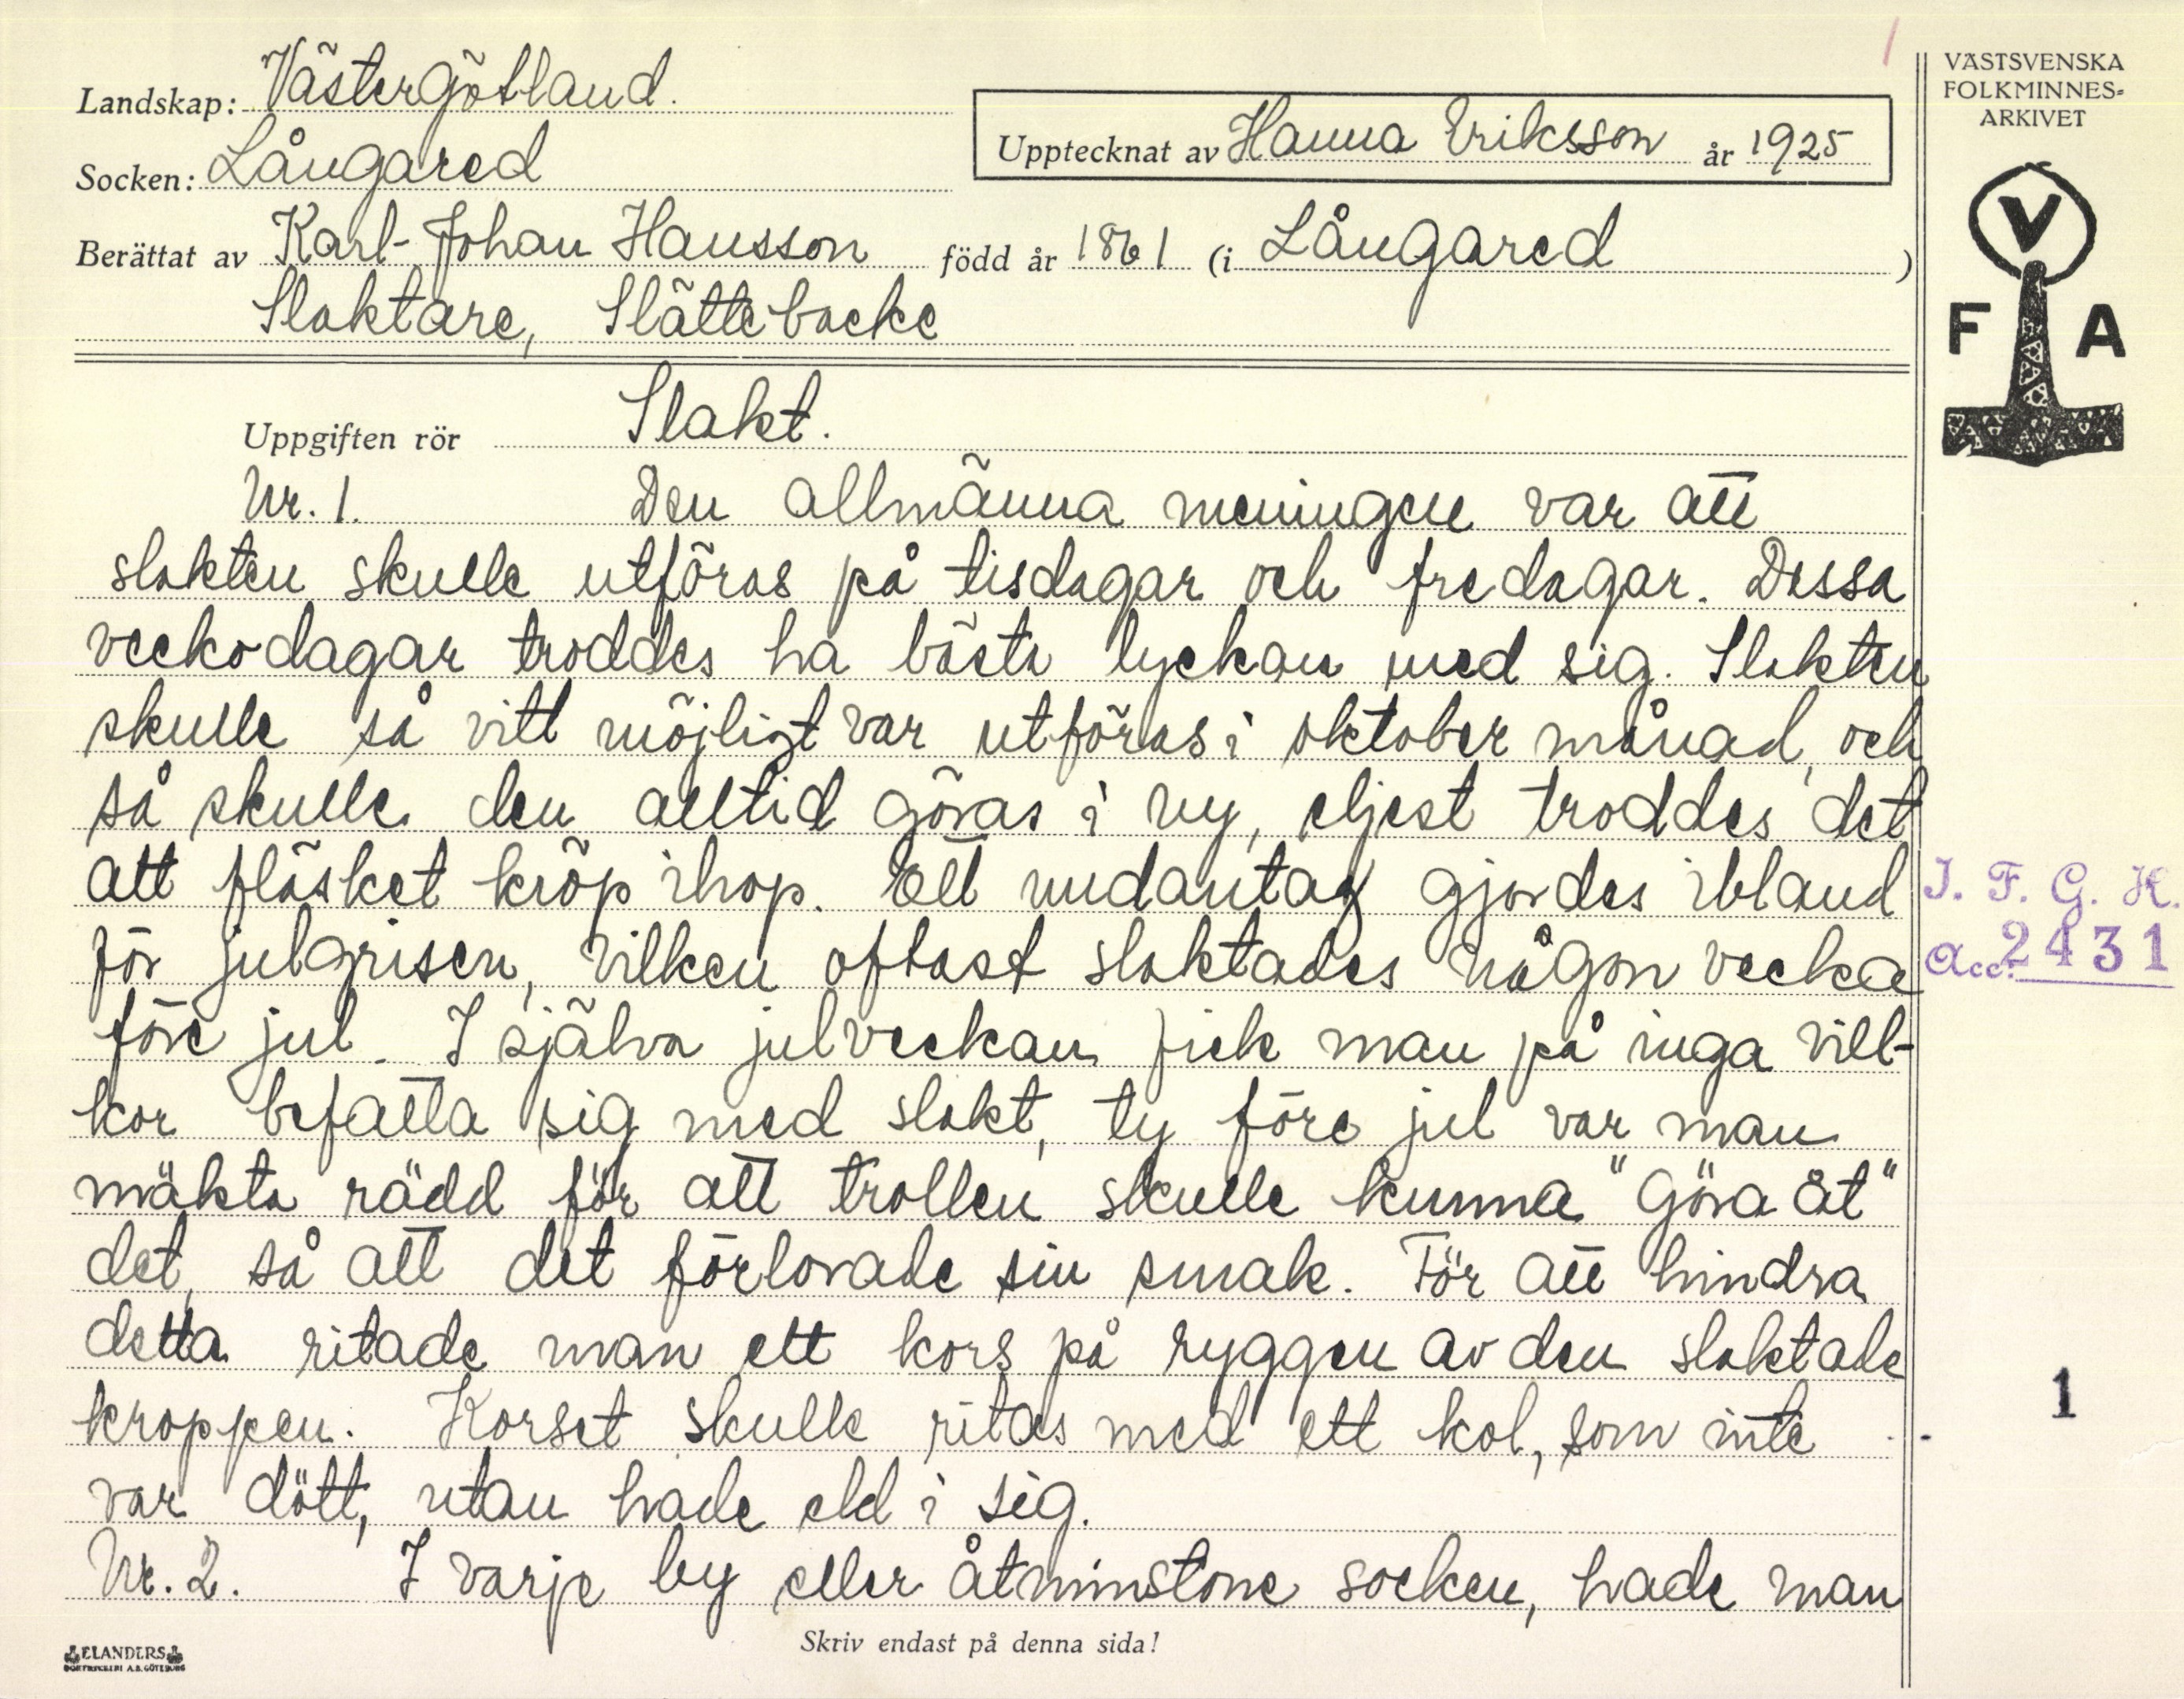 Landskap: Västergötland.
Socken: Långared
Upptecknat av Hanna Eriksson år 1925
Berättat av Karl-Johan Hansson född år 1861 (i Långared )
Slaktare, Slättebacke
VÄSTSVENSKA
FOLKMINNES-
ARKIVET
V
F A
Uppgiften rör Slakt.
Nr. 1. Den allmänna meningen var att
slakten skulle utföras på tisdagar och fredagar. Dessa
veckodagar troddes ha bästa lyckan med sig. Slakten
skulle så vitt möjligt var utföras i oktober månad, och
så skulle den alltid göras i ny, eljest troddes det
att fläsket kröp ihop. Ett undantag gjordes ibland
för julgrisen, vilken oftast slaktades någon vecka
före jul. I själva julveckan fick man på inga vill-
kor befatta sig med slakt, ty före jul var man
mäkta rädd för att trollen skulle kunna "göra åt"
det, så att det förlorade sin smak. För att hindra
detta ritade man ett kors på ryggen av den slaktade
kroppen. Korset skulle ritas med ett kol, som inte
var dött, utan hade eld i sig.
Nr. 2. I varje by eller åtminstone socken, hade man
I. F. G. H.
Acc. 2431
1
Skriv endast på denna sida!
ELANDERS
BOKTRYCKERI A.B. GÖTEBORG